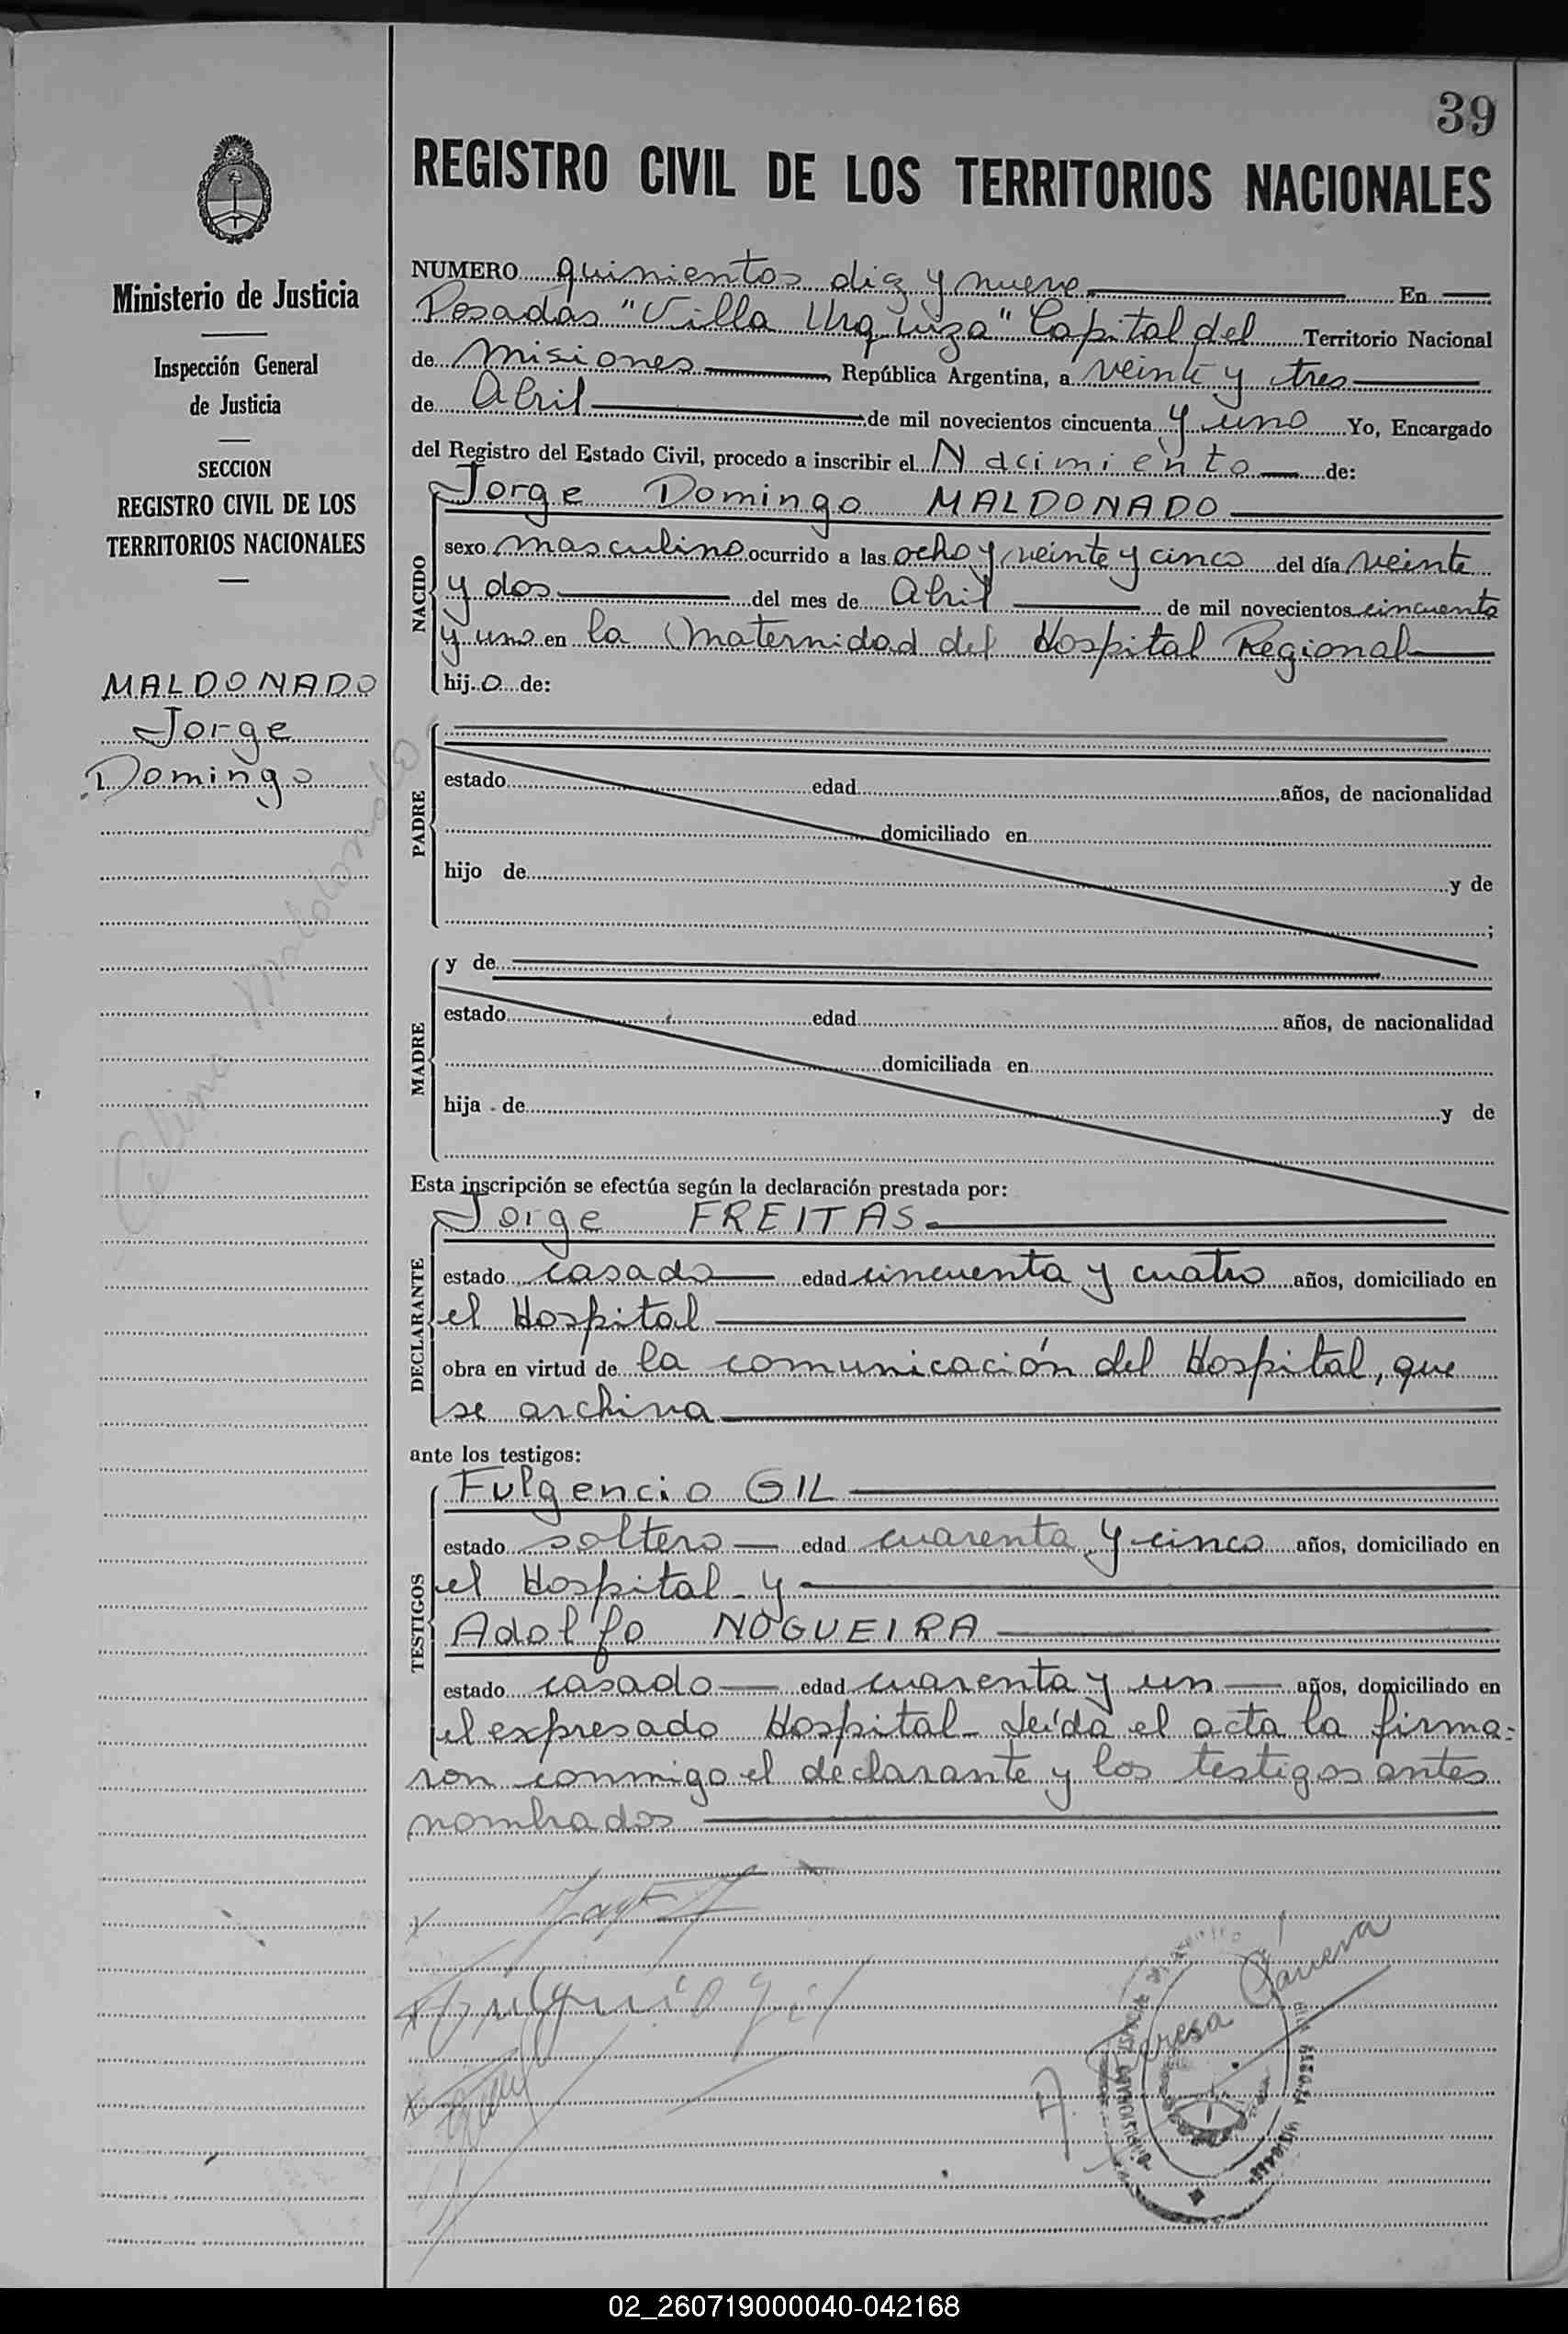 39
REGISTRO CIVIL DE LOS TERRITORIOS NACIONALES
Ministerio de Justicia
Inspección General
de Justicia
SECCION
REGISTRO CIVIL DE LOS
TERRITORIOS NACIONALES
MALDONADO
Jorge
Domingo
Maldonado
NUMERO quinientos diez y nueve En
Posadas "Villa Urquiza" Capital del Territorio Nacional
de Misiones, República Argentina, a veinte y tres
de Abril de mil novecientos cincuenta y uno Yo, Encargado
del Registro del Estado Civil, procedo a inscribir el Nacimiento de:
NACIDO
Jorge Domingo MALDONADO
sexo masculino ocurrido a las ocho y veinte y cinco del día veinte
y dos del mes de Abril de mil novecientos cincuenta
y uno en la Maternidad del Hospital Regional
hijo de:
PADRE
estado edad años, de nacionalidad
domiciliado en
hijo de y de
;
MADRE
y de
estado edad años, de nacionalidad
domiciliada en
hija de y de
Esta inscripción se efectúa según la declaración prestada por:
DECLARANTE
Jorge FREITAS
estado casado edad cincuenta y cuatro años, domiciliado en
el Hospital
obra en virtud de la comunicación del Hospital, que
se archiva
ante los testigos:
TESTIGOS
Fulgencio GIL
estado soltero edad cuarenta y cinco años, domiciliado en
el Hospital y
Adolfo NOGUEIRA
estado casado edad cuarenta y un años, domiciliado en
el expresado Hospital - Leída el acta la firma-
ron conmigo el declarante y los testigos antes
nombrados
Fulgencio Gil
A. Teresa
02_260719000040-042168